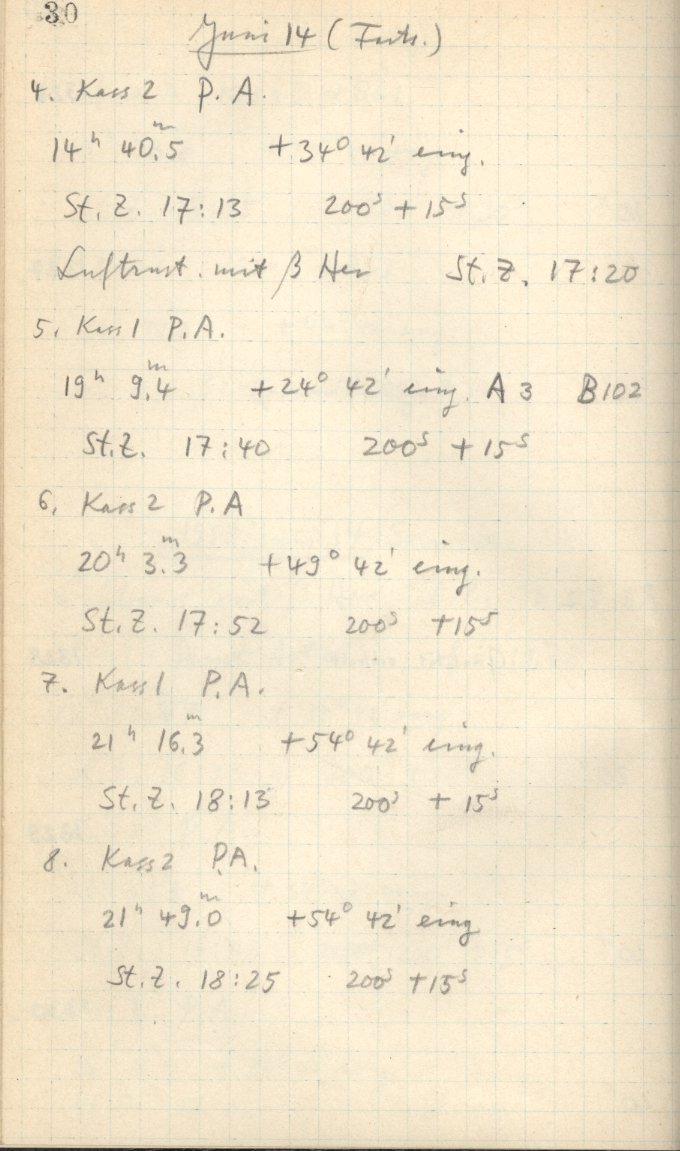 30
Juni 14 (Forts.)
4. Kass 2 P. A.
14ʰ 40.5ᵐ +34° 42' eing.
St. Z. 17:13 200ˢ +15ˢ
mit β Her St. Z. 17:20
5. Kass 1 P. A.
19ʰ 9.4ᵐ +24° 42' eing. A 3 B 102
St. Z. 17:40 200ˢ +15ˢ
6. Kass 2 P. A
20ʰ 3.3ᵐ +49° 42' eing.
St. Z. 17:52 200ˢ +15ˢ
7. Kass 1 P. A.
21ʰ 16.3ᵐ +54° 42' eing.
St. Z. 18:13 200ˢ + 15ˢ
8. Kass 2 P.A.
21ʰ 49.0ᵐ +54° 42' eing
St. Z. 18:25 200ˢ +15ˢ